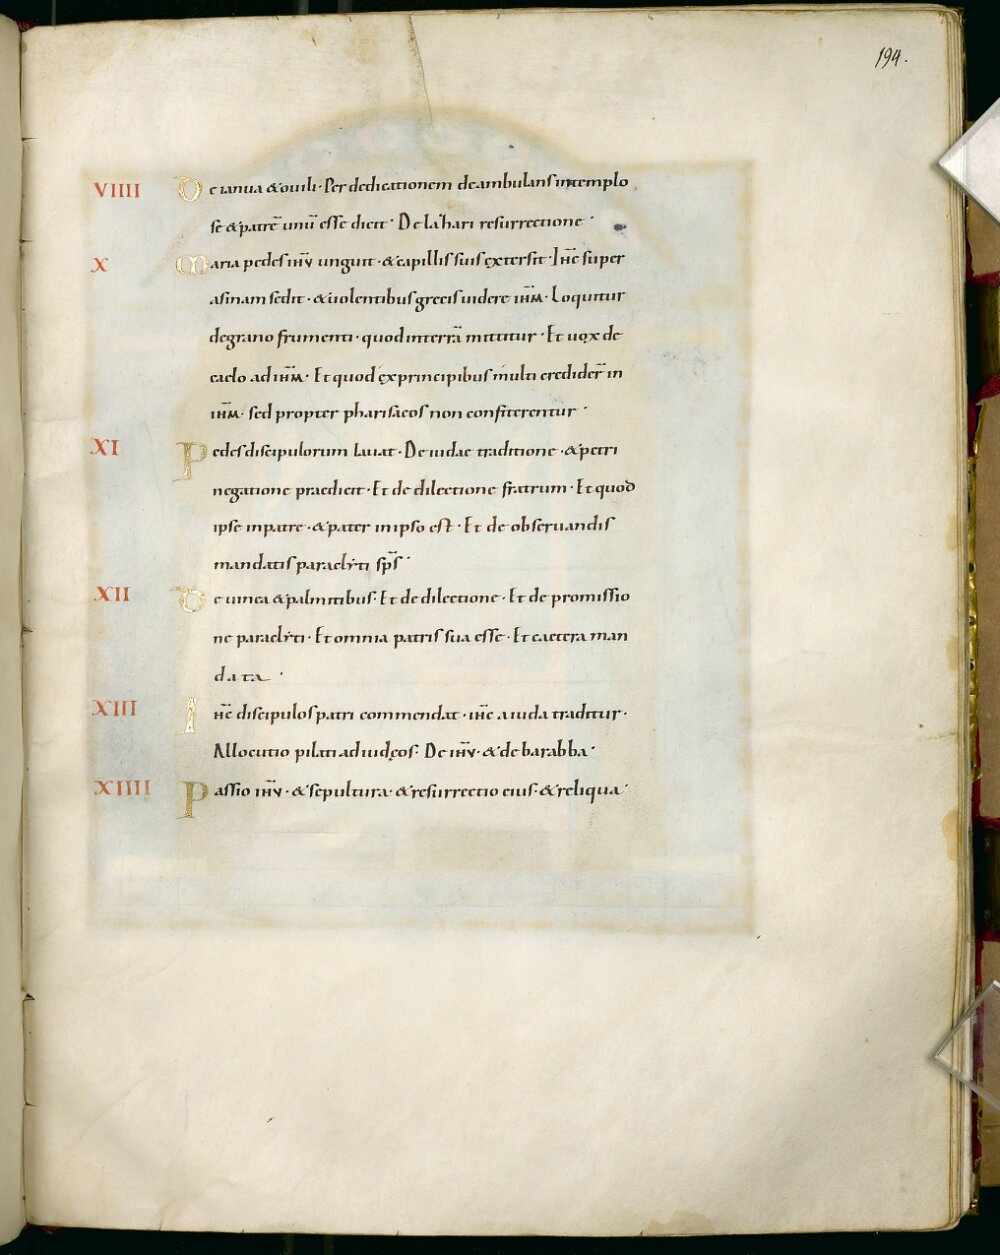 194.
VIIII De ianua & ouili · Per dedicationem deambulans in templo
se & patrē unū esse dicit · De lazari resurrectione ·
X Maria pedes ihu unguit · & capillis suis extersit · Ihc super
asinam sedit · & uolentibus grecis uidere ihm · Loquitur
de grano frumenti · quod in terrā mittitur · Et uox de
caelo ad ihm · Et quod ex principibus multi credider̄ in
ihm · sed propter pharisaeos non confiterentur ·
XI Pedes discipulorum lauat · De iudae traditione · & petri
negatione praedicit · Et de dilectione fratrum · Et quod
ipse in patre · & pater in ipso est · Et de obseruandis
mandatis paraclyti sp̄s ·
XII De uinea & palmitibus · Et de dilectione · Et de promissio
ne paraclyti · Et omnia patris sua esse · Et caetera man
data ·
XIII Ihc discipulos patri commendat · ihc a iuda traditur ·
Allocutio pilati ad iudęos · De ihu · & de barabba ·
XIIII Passio ihu · & sepultura · & resurrectio eius · & reliqua ·